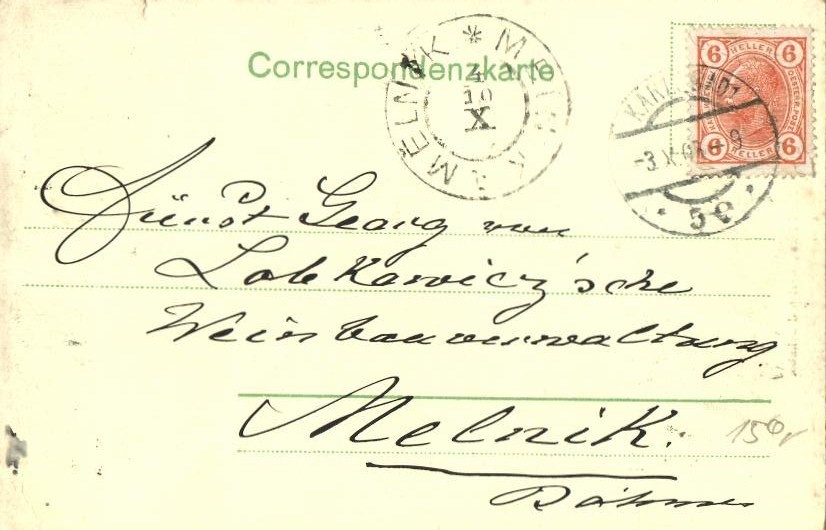 Correspondenzkarte
MĚLNÍK * MELNIK
4
10
X
6 HELLER 6
6 HELLER 6
5 e
Fürst Georg von
Lobkowicz'sche
Weinbauverwaltung
Melnik.
Böhmen